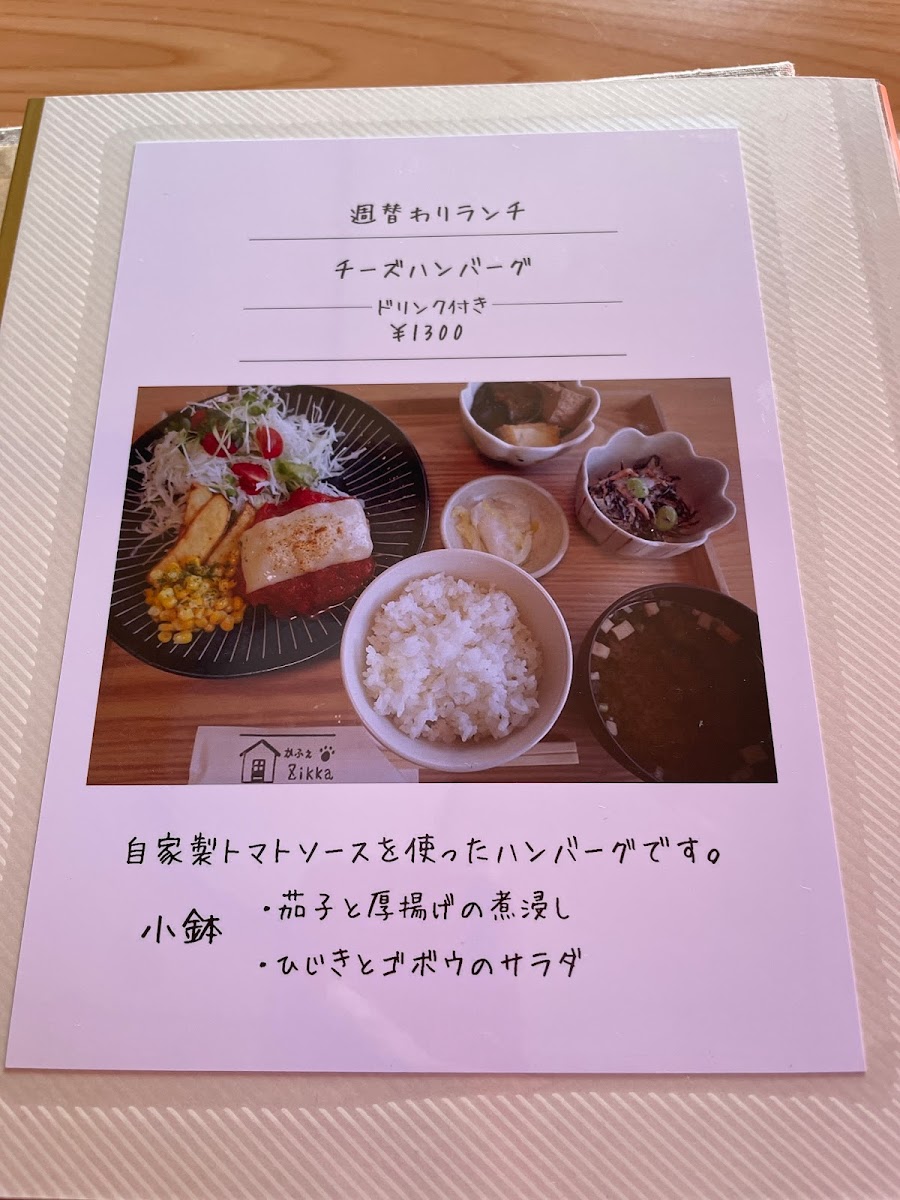 週替わりランチ
チーズハンバーグ
ドリンク付き
¥1300
かふぇ
Zikka
自家製トマトソースを使ったハンバーグです。
小鉢
・茄子と厚揚げの煮浸し
・ひじきとゴボウのサラダ